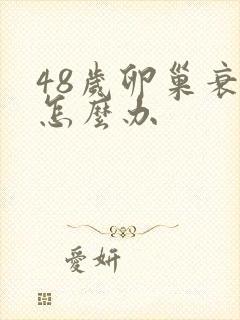 48歲卵巢衰
怎麼办
愛妍